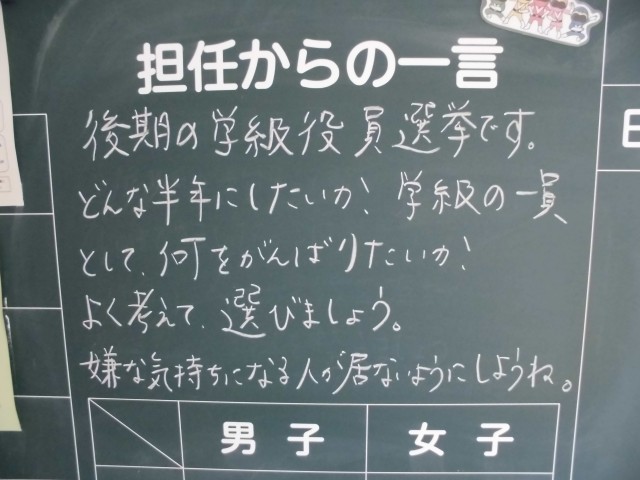 担任からの一言
後期の学級役員選挙です。
どんな半年にしたいか！学級の一員
として、何をがんばりたいか！
よく考えて、選びましょう。
嫌な気持ちになる人が居ないようにしようね。
男子 女子